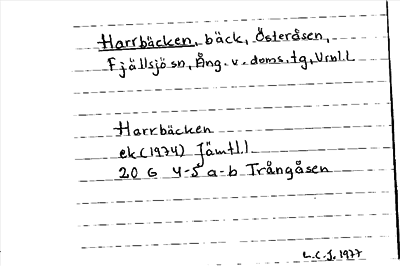 Harrbäcken, bäck, Österåsen,
Fjällsjö sn, Ång. v. doms. tg, Vrnl.l
Harrbäcken
ek (1974) Jämtl.l
20 G 4-5 a-b Trångåsen
L.C.J. 1977